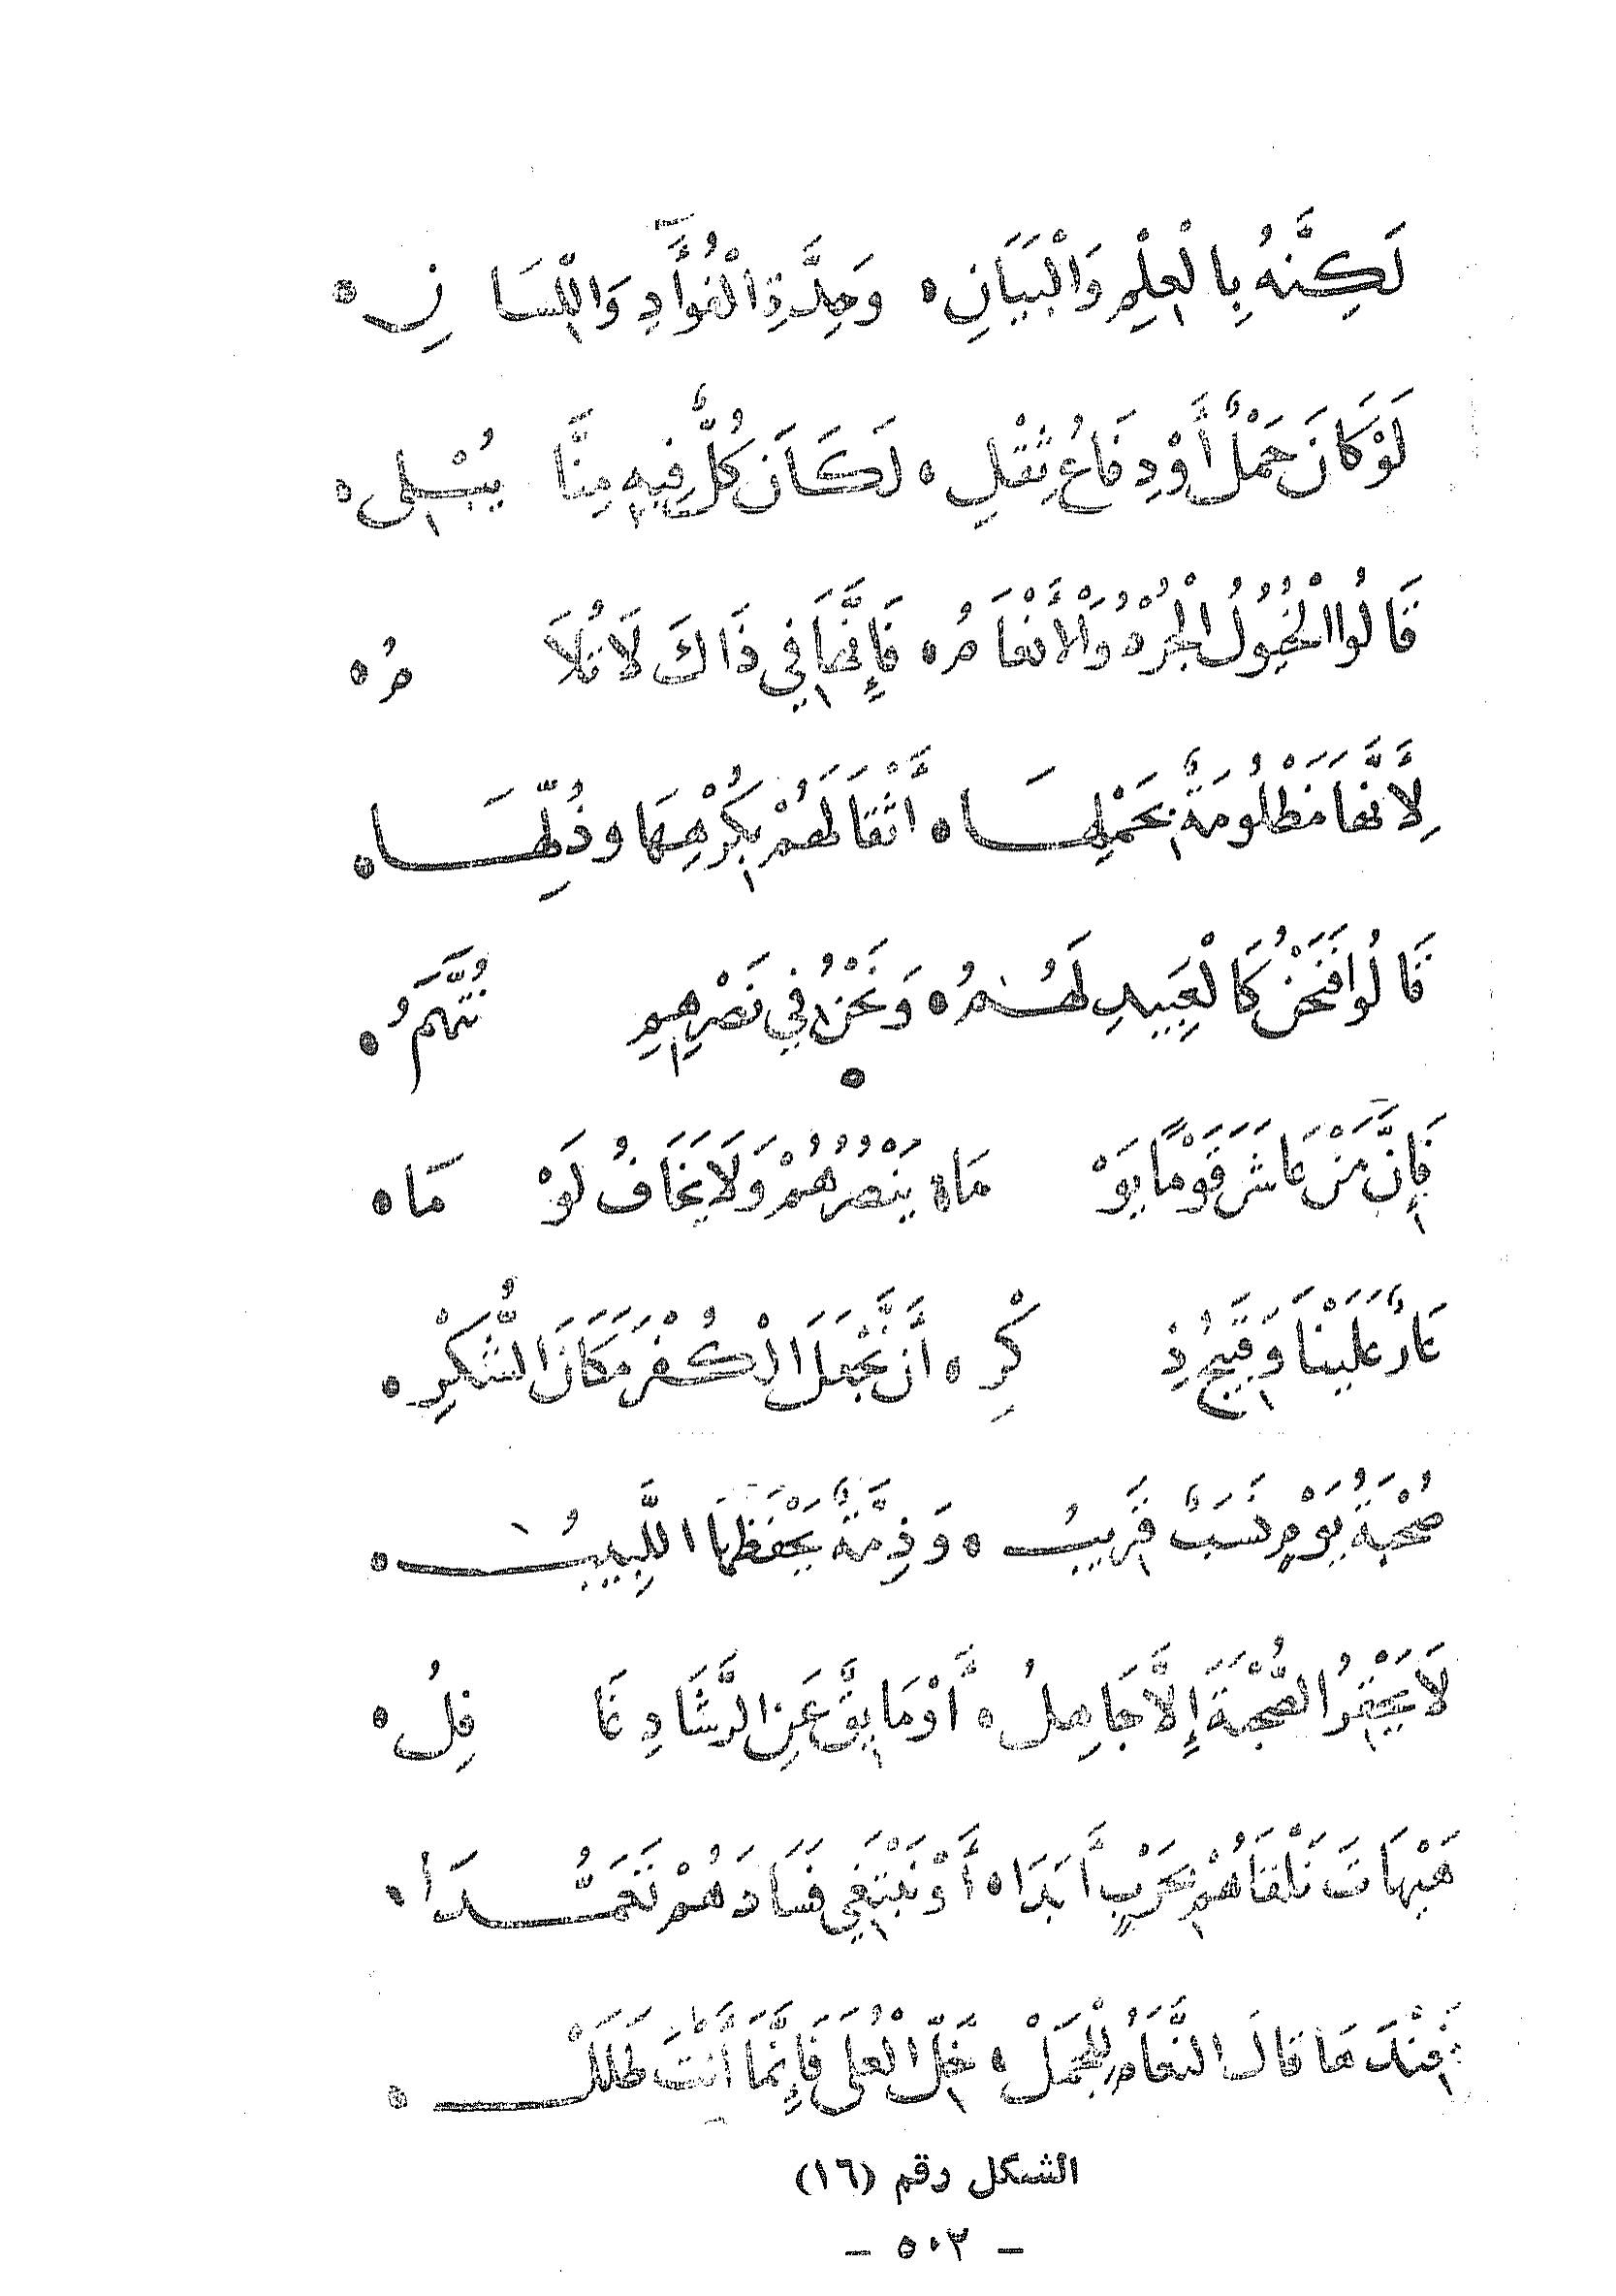 لَكِنَّهُ بِالْعِلْمِ وَالْبَيَانِ ٥ وَحِدَّةِ الْفُؤَادِ وَاللِّسَانِ ٥
لَوْ كَانَ حَمْلٌ أَوْ دِفَاعُ ثِقْلِ ٥ لَكَانَ كُلٌّ فِيهِ مِنَّا يُبْلِى ٥
قَالُوا الْخُيُولُ الْجُرْدُ وَالْأَنْعَامُ ٥ فَإِنَّهَا فِي ذَاكَ لَا تُلَامُ ٥
لِأَنَّهَا مَظْلُومَةٌ بِحَمْلِهَا ٥ أَثْقَالَهُمْ بِكُرْهِهَا وذُلِّهَا ٥
قَالُوا فَنَحْنُ كَالْعَبِيدِ لَهُمُ ٥ وَنَحْنُ فِي نَصْرِهِمِ نُتَّهَمُ ٥
فَإِنَّ مَنْ عَاشَرَ قَوْمًا يَوْمَا ٥ يَنْصُرُهُمْ وَلَا يَخَافُ لَوْمَا ٥
عَارٌ عَلَيْنَا وَقَبِيحُ ذِكْرِ ٥ أَنْ نَجْعَلَ الْكُفْرَ مَكَانَ الشُّكْرِ ٥
صُحْبَةُ يَوْمٍ نَسَبٌ قَرِيبُ ٥ وَذِمَّةٌ يَحْفَظُهَا اللَّبِيبُ ٥
لَا يَحْقِرُ الصُّحْبَةَ إِلَّا جَاهِلُ ٥ أَوْ مَايِقٌ عَنِ الرَّشَادِ غَافِلُ ٥
هَيْهَاتَ نَلْقَاهُمْ بِحَرْبٍ أَبَدَا ٥ أَوْ نَبْتَغِي فَسَادَهُمْ تَعَمُّدَا ٥
فَعِنْدَهَا قَالَ النَّعَامُ لِلْجَمَلْ ٥ خَلِّ الْعُلَى فَإِنَّمَا أَنْتَ طَلَلْ ٥
الشكل رقم (١٦)
- ٥٠٢ -